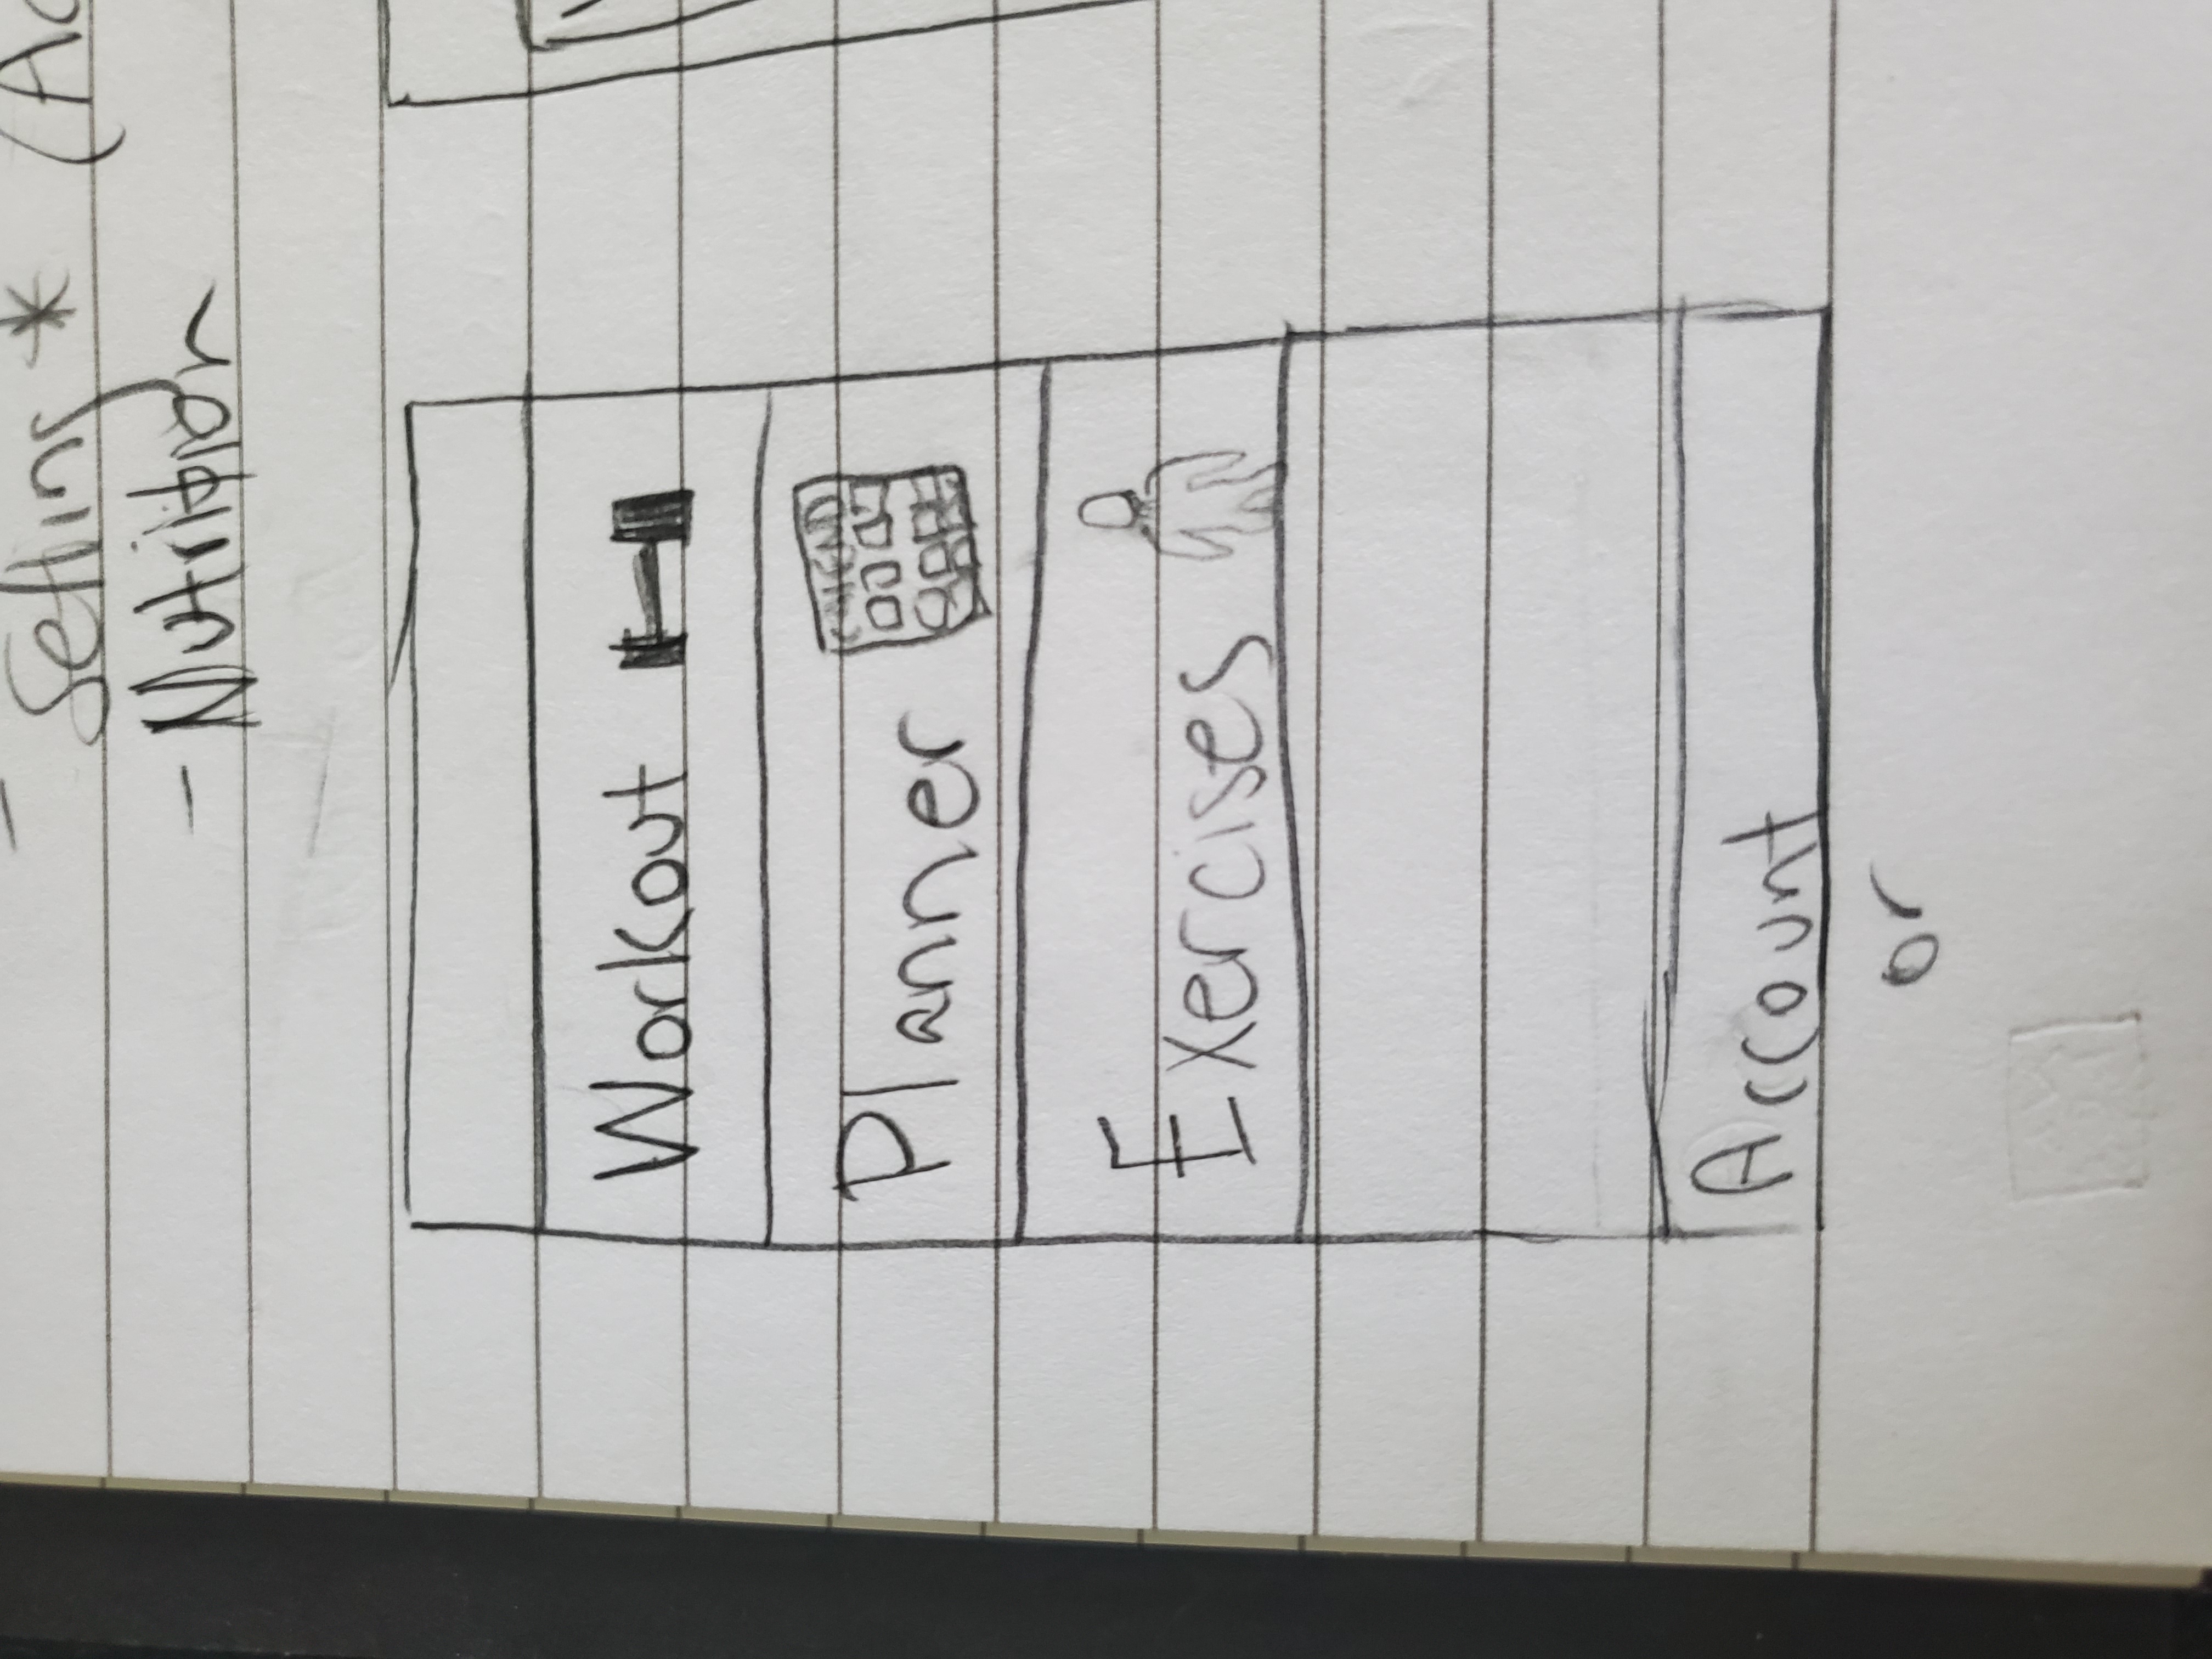 - Setting * (Ac
- Nutrition
Workout
Planner
CALEND
Exercises
Account
or